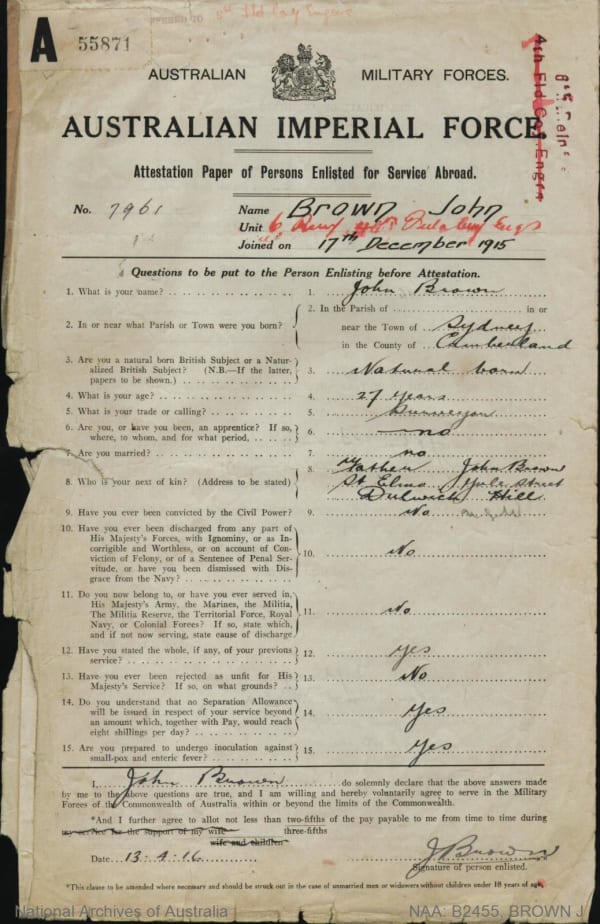 A
55871
4th Fld Coy Engrs
AUSTRALIAN MILITARY FORCES.
4th Fld Coy. Engrs
AUSTRALIAN IMPERIAL FORCE
Attestation Paper of Persons Enlisted for Service Abroad.
No. 7961 Name Brown John
Unit
Joined on 17th December 1915
Questions to be put to the Person Enlisting before Attestation.
1. What is your name? 1. John Brown
2. In or near what Parish or Town were you born? 2. In the Parish of in or
near the Town of Sydney
in the County of Cumberland
3. Are you a natural born British Subject or a Natur-
alized British Subject? (N.B.—If the latter, 3. Natural born
papers to be shown.)
4. What is your age? 4. 27 years
5. What is your trade or calling? 5.
6. Are you, or have you been, an apprentice? If so, 6. no
where, to whom, and for what period,
7. Are you married? 7. no
8. Who is your next of kin? (Address to be stated) 8. Father John Brown
St Elmo Yule Street
Dulwich Hill
9. Have you ever been convicted by the Civil Power? 9. No
10. Have you ever been discharged from any part of
His Majesty's Forces, with Ignominy, or as In-
corrigible and Worthless, or on account of Con-
viction of Felony, or of a Sentence of Penal Ser- 10. No
vitude, or have you been dismissed with Dis-
grace from the Navy?
11. Do you now belong to, or have you ever served in,
His Majesty's Army, the Marines, the Militia,
The Militia Reserve, the Territorial Force, Royal 11. No
Navy, or Colonial Forces? If so, state which,
and if not now serving, state cause of discharge
12. Have you stated the whole, if any, of your previous 12. yes
service?
13. Have you ever been rejected as unfit for His 13. No
Majesty's Service? If so, on what grounds?
14. Do you understand that no Separation Allowance
will be issued in respect of your service beyond 14. yes
an amount which, together with Pay, would reach
eight shillings per day?
15. Are you prepared to undergo inoculation against 15. yes
small-pox and enteric fever?
I, John Brown do solemnly declare that the above answers made
by me to the above questions are true, and I am willing and hereby voluntarily agree to serve in the Military
Forces of the Commonwealth of Australia within or beyond the limits of the Commonwealth.
*And I further agree to allot not less than two-fifths of the pay payable to me from time to time during
my service for the support of my wife three-fifths
wife and children
Date 13-4-16 J Brown
Signature of person enlisted.
*This clause to be amended where necessary and should be struck out in the case of unmarried men or widowers without children under 18 years of age.
National Archives of Australia NAA: B2455, BROWN J